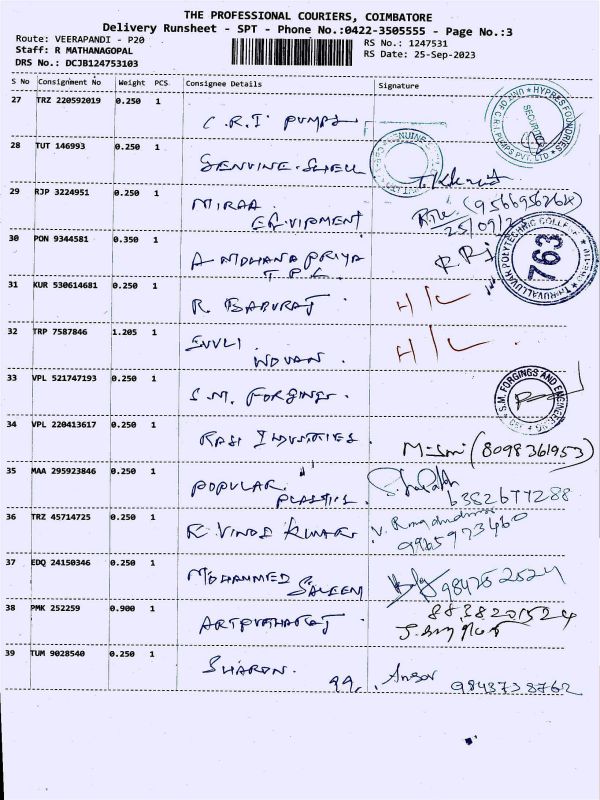 THE PROFESSIONAL COURIERS, COIMBATORE
Delivery Runsheet - SPT - Phone No.:0422-3505555 - Page No.:3
Route: VEERAPANDI - P20
RS No.: 1247531
Staff: R MATHANAGOPAL
RS Date: 25-Sep-2023
DRS No.: DCJB124753103
S No Consignment No Weight PCS Consignee Details Signature
27 TRZ 220592019 0.250 1
C.R.I PUMPS
UNIT OF C.R.I. PUMPS PVT. LTD * HYPRES FOUNDRIES *
SECURITY
28 TUT 146993 0.250 1
GENUINE SHELL
29 RJP 3224951 0.250 1
MIRAA
EQUIPMENT
(9566956264)
25/09/2
30 PON 9344581 0.350 1
PRIYA
T.P.C
THIRUVALLUVAR POLYTECHNIC COLLEGE
763
31 KUR 530614681 0.250 1
R. BABURAJ
H/C
32 TRP 7587846 1.205 1
H/C
33 VPL 521747193 0.250 1
S.M. FORGINGS.
S.M. FORGINGS AND ENGINEER
34 VPL 220413617 0.250 1
RASI INDUSTRIES.
(8098361953)
35 MAA 295923846 0.250 1
POPULAR
PLASTICS.
6382677288
36 TRZ 45714725 0.250 1
R VINOD KUMAR
9965973460
37 EDQ 24150346 0.250 1
MOHAMMED
SALEEM
9847525524
38 PMK 252259 0.900 1
8838201524
39 TUM 9028540 0.250 1
SHARON.
99.
Ansar
9843738762